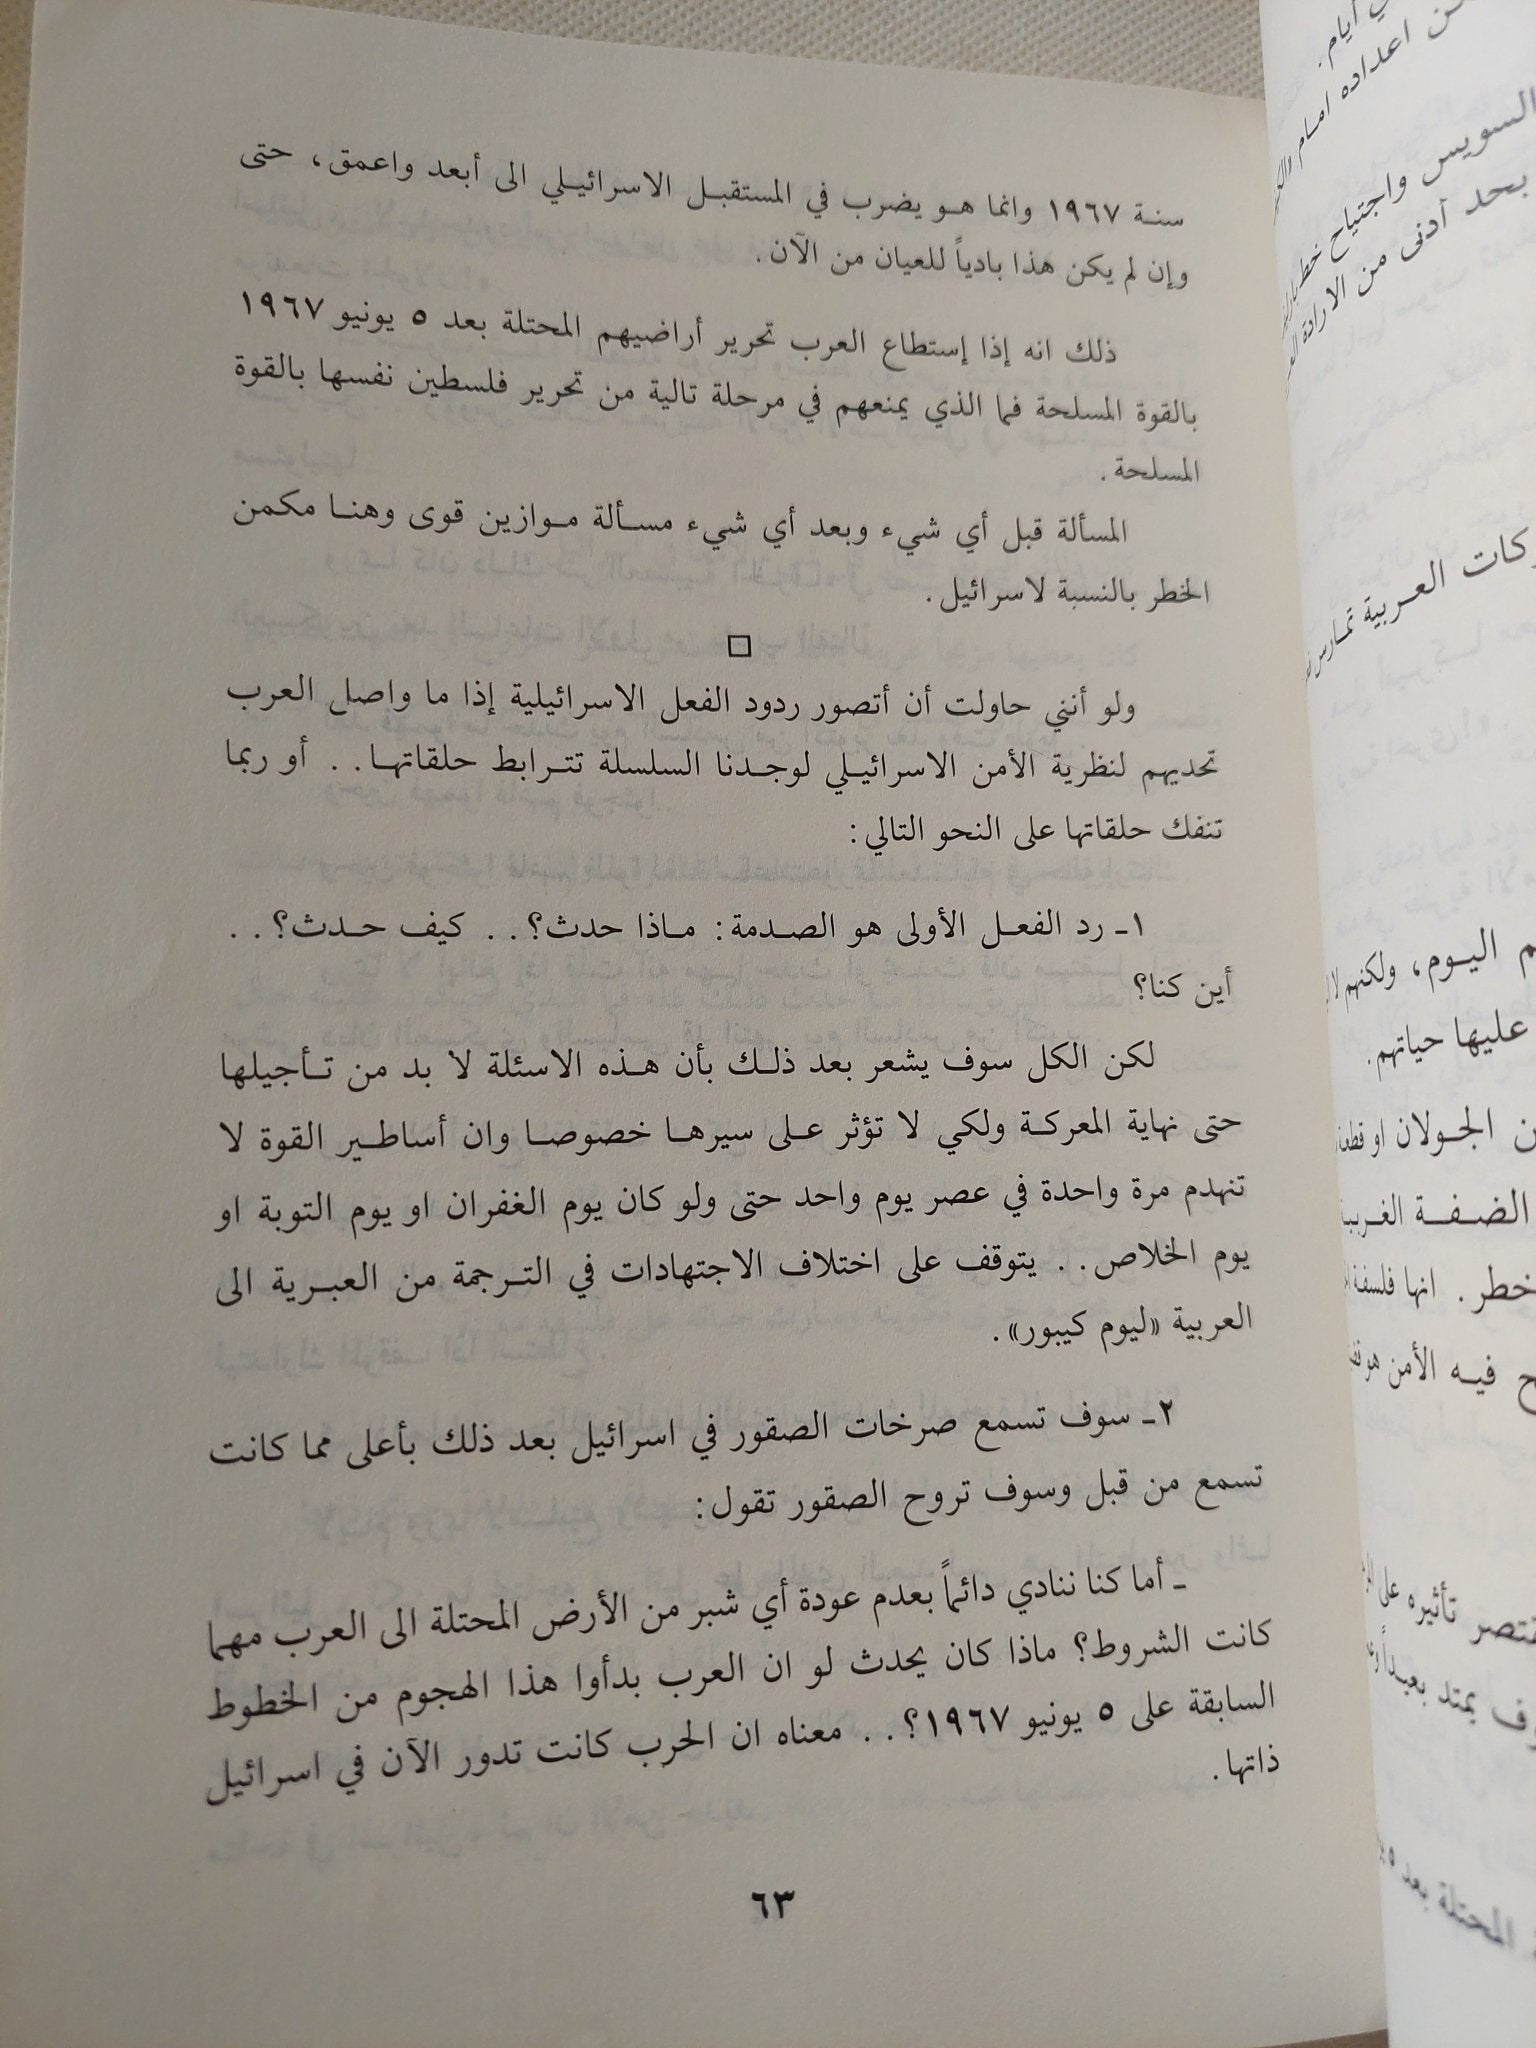 سنة ١٩٦٧ وانما هو يضرب في المستقبل الاسرائيلي الى أبعد واعمق، حتى
وإن لم يكن هذا بادياً للعيان من الآن.
ذلك انه إذا إستطاع العرب تحرير أراضيهم المحتلة بعد ٥ يونيو ١٩٦٧
بالقوة المسلحة فما الذي يمنعهم في مرحلة تالية من تحرير فلسطين نفسها بالقوة
المسلحة.
المسألة قبل أي شيء وبعد أي شيء مسألة موازين قوى وهنا مكمن
الخطر بالنسبة لاسرائيل.
ولو أنني حاولت أن أتصور ردود الفعل الاسرائيلية إذا ما واصل العرب
تحديهم لنظرية الأمن الاسرائيلي لوجدنا السلسلة تترابط حلقاتها.. أو ربما
تنفك حلقاتها على النحو التالي:
١ـ رد الفعل الأولى هو الصدمة: ماذا حدث؟.. كيف حدث؟..
أين كنا؟
لكن الكل سوف يشعر بعد ذلك بأن هذه الاسئلة لا بد من تأجيلها
حتى نهاية المعركة ولكي لا تؤثر على سيرها خصوصا وان أساطير القوة لا
تنهدم مرة واحدة في عصر يوم واحد حتى ولو كان يوم الغفران او يوم التوبة او
يوم الخلاص.. يتوقف على اختلاف الاجتهادات في الترجمة من العبرية الى
العربية «ليوم كيبور».
٢ـ سوف تسمع صرخات الصقور في اسرائيل بعد ذلك بأعلى مما كانت
تسمع من قبل وسوف تروح الصقور تقول:
ـ أما كنا ننادي دائماً بعدم عودة أي شبر من الأرض المحتلة الى العرب مهما
كانت الشروط؟ ماذا كان يحدث لو ان العرب بدأوا هذا الهجوم من الخطوط
السابقة على ٥ يونيو ١٩٦٧؟.. معناه ان الحرب كانت تدور الآن في اسرائيل
ذاتها.
٦٣
أيام.
اعداده امام
السويس واجتياح خط
بحد أدنى من الارادة
العربية تمارس
اليوم، ولكنهم
عليها حياتهم.
الجولان او
الضفة الغربية
خطر. انها فلسفة
فيه الأمن هو
تأثيره على